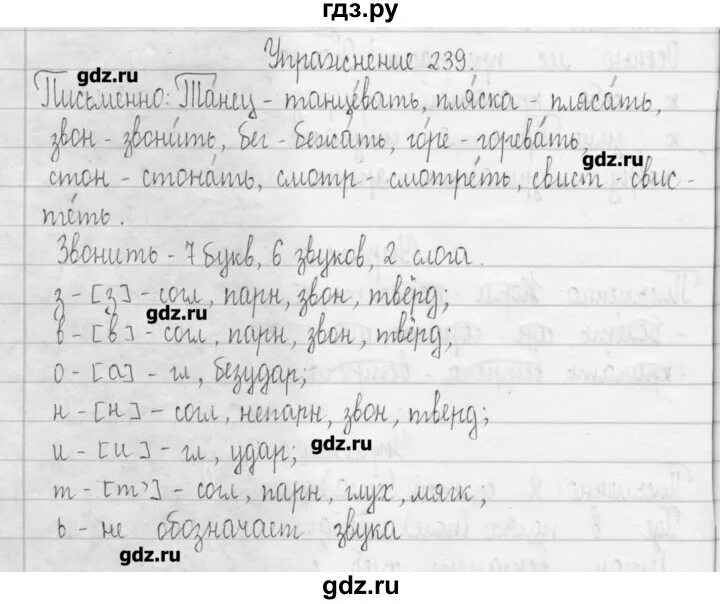 гдз.ру
Упражнение 239.
gdz.ru
Письменно: Та́нец - танцева́ть, пля́ска - пляса́ть,
звон - звони́ть, бег - бежа́ть, го́ре - горева́ть,
gdz.ru
стон - стона́ть, смотр - смотре́ть, свист - свис-
те́ть.
Звонить - 7 букв, 6 звуков, 2 слога.
з - [з] - согл, парн, звон, твёрд;
gdz.ru
в - [в] - согл, парн, звон, твёрд;
о - [а] - гл, безудар;
н - [н] - согл, непарн, звон, тверд;
и - [и] - гл, удар;
gdz.ru
т - [т'] - согл, парн, глух, мягк;
ь - не обозначает звука
gdz.ru
gdz.ru